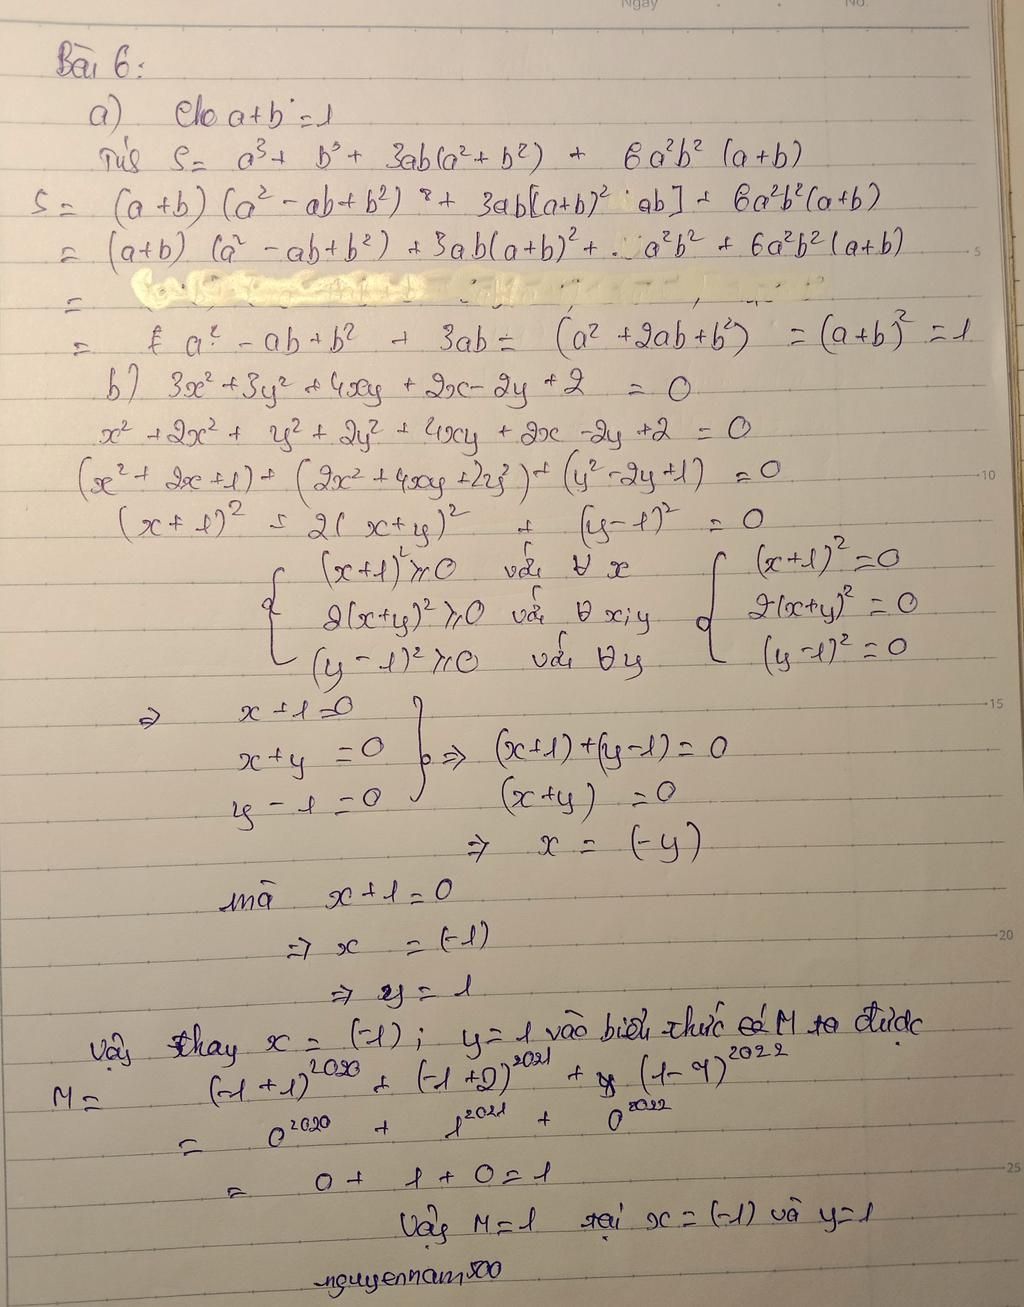 Ngày No.
Bài 6:
a) Cho a+b=1
Tính S= a³+ b³+ 3ab(a²+b²) + 6a²b² (a+b)
S= (a+b) (a² -ab+b²) + 3ab[(a+b)² ab] + 6a²b²(a+b)
= (a+b) (a² -ab+b²) + 3ab(a+b)² + a²b² + 6a²b²(a+b)
=
= a² -ab+b² + 3ab = (a² +2ab+b²) = (a+b)² = 1
b) 3x²+3y²+4xy+2x-2y+2 = 0
x² +2x² + y² + 2y² + 4xy + 2x -2y +2 = 0
(x²+ 2x +1) + (2x² +4xy +2y²) + (y² -2y +1) = 0
(x+1)² + 2(x+y)² + (y-1)² = 0
(x+1)² ≥0 với ∀ x (x+1)²=0
2(x+y)² ≥0 với ∀ x;y 2(x+y)² = 0
(y-1)² ≥0 với ∀y (y-1)² = 0
⇒ x+1=0
x+y =0 ⇒ (x+1)+(y-1)= 0
y - 1 =0 (x+y) =0
⇒ x = (-y)
mà x+1=0
⇒ x = (-1)
⇒ y = 1
Vậy thay x = (-1); y=1 vào biểu thức M ta được
M= (-1+1)²⁰²⁰ + (-1+2)²⁰²¹ + (1-1)²⁰²²
= 0²⁰²⁰ + 1²⁰²¹ + 0²⁰²²
= 0+ 1+0=1
Vậy M=1 tại x=(-1) và y=1
nguyennam500
5
10
15
20
25